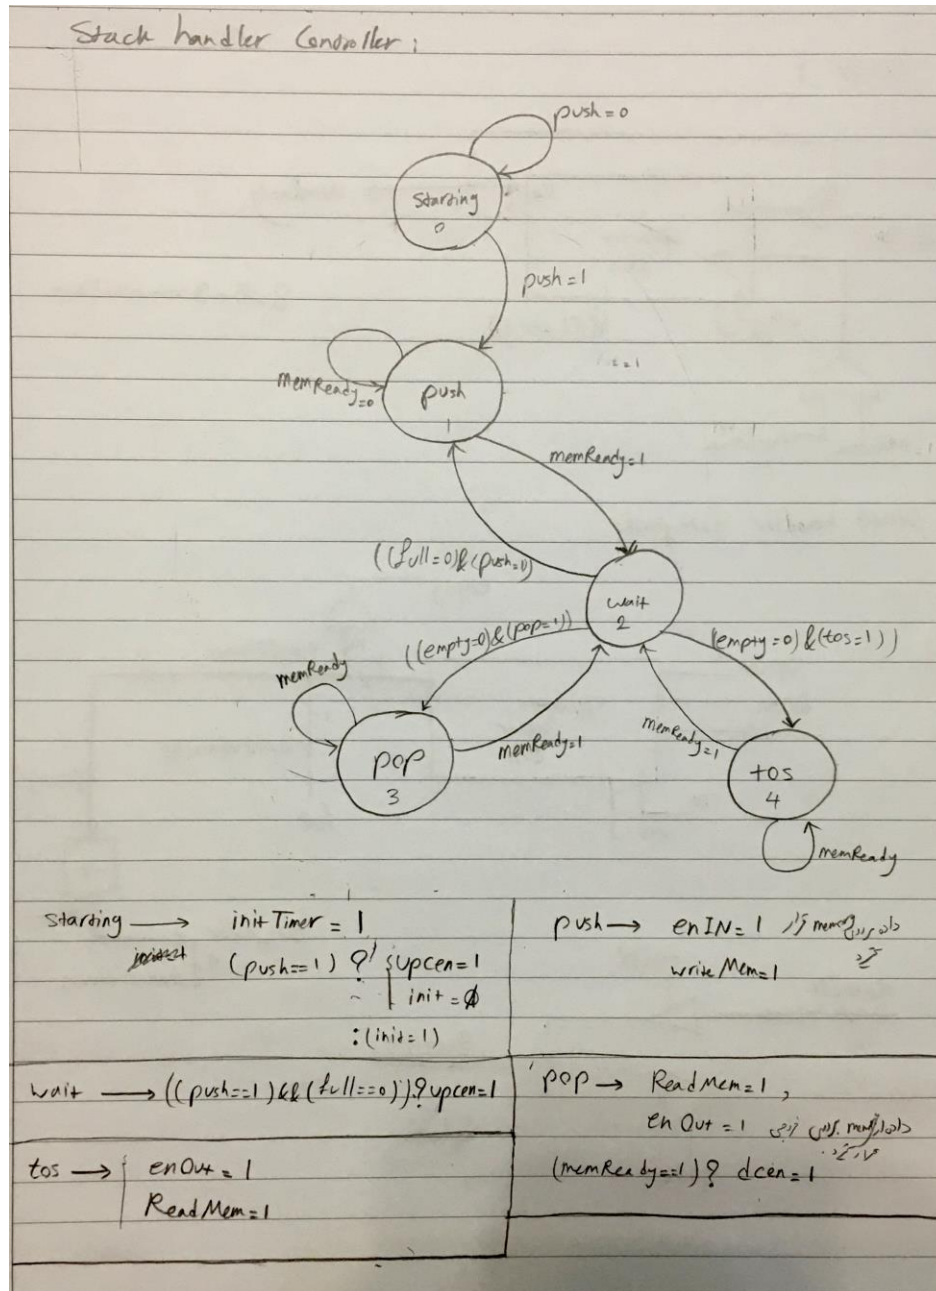 Stack handler Controller :
push=0
Starting
0
push=1
memReady=0
push
1
memReady=1
((full=0)&(push=1)
wait
2
((empty=0)&(pop=1))
(empty=0)&(tos=1))
memReady
memReady=1
memReady=1
pop
3
tos
4
memReady
starting → initTimer = 1
(push==1) ? { upcen=1
init = 0
:(init=1)
push → enIN= 1
writeMem=1
wait → ((push==1)&&(full==0))? upcen=1
pop → ReadMem=1 ,
enOut = 1
(memReady==1)? dcen=1
tos → enOut = 1
ReadMem=1